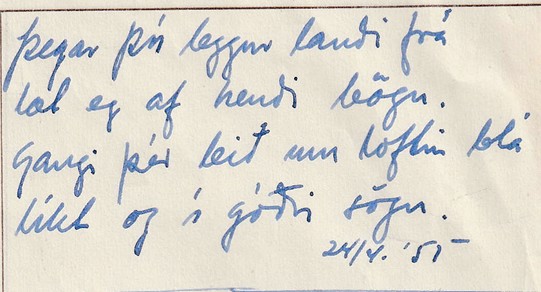 Þegar þú leggur landi frá
læt eg af hendi bögu.
Gangi þér leið um loftin blá
líkt og í góðri sögu.
24/4. '55